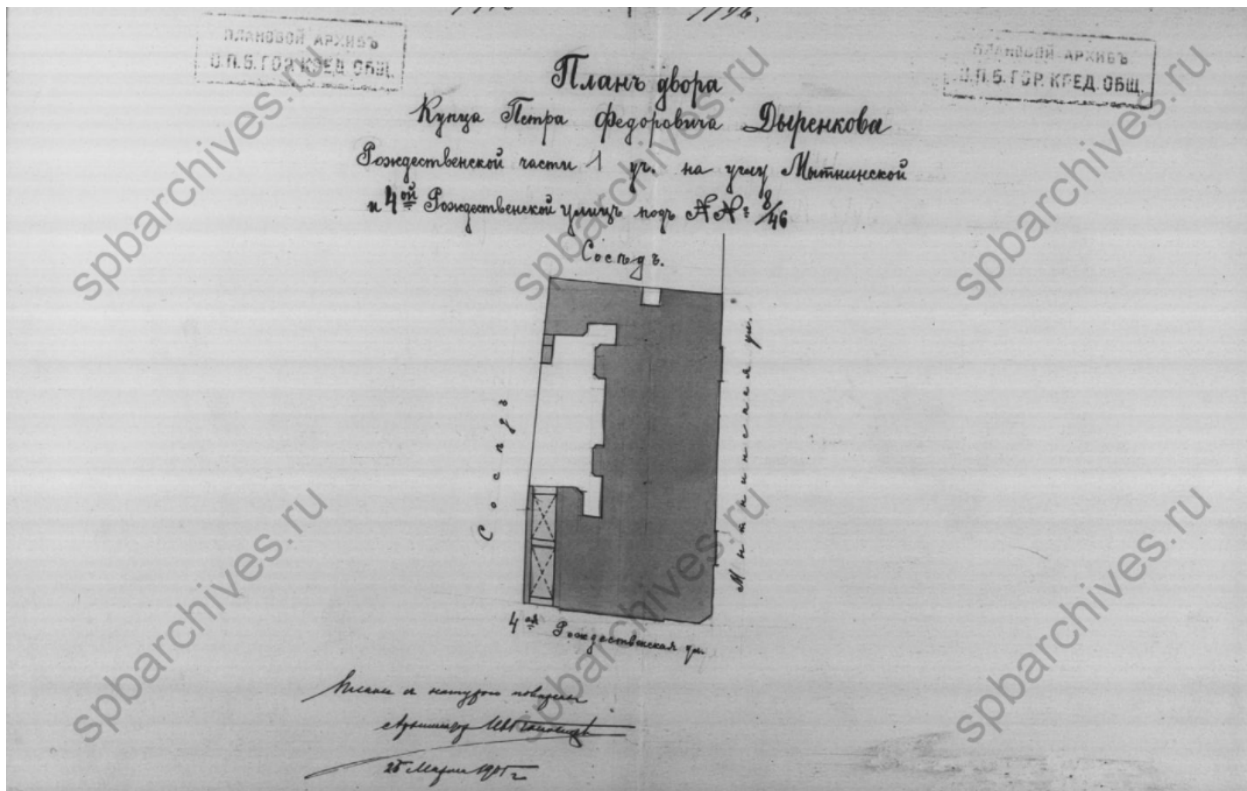 ПЛАНОВОЙ АРХИВЪ
О.П.Б. ГОР. КРЕД. ОБЩ.
ПЛАНОВОЙ АРХИВЪ
О.П.Б. ГОР. КРЕД. ОБЩ.
Планъ двора
Купца Петра Федоровича Дыренкова
Рождественской части 1 уч. на углу Мытнинской
и 4ой Рождественской улицъ подъ №№ 8/46
Соседъ.
Соседъ
Мытнинская ул.
4ая Рождественская ул.
Архитектор
25 Марта
spbarchives.ru
spbarchives.ru
spbarchives.ru
spbarchives.ru
spbarchives.ru
spbarchives.ru